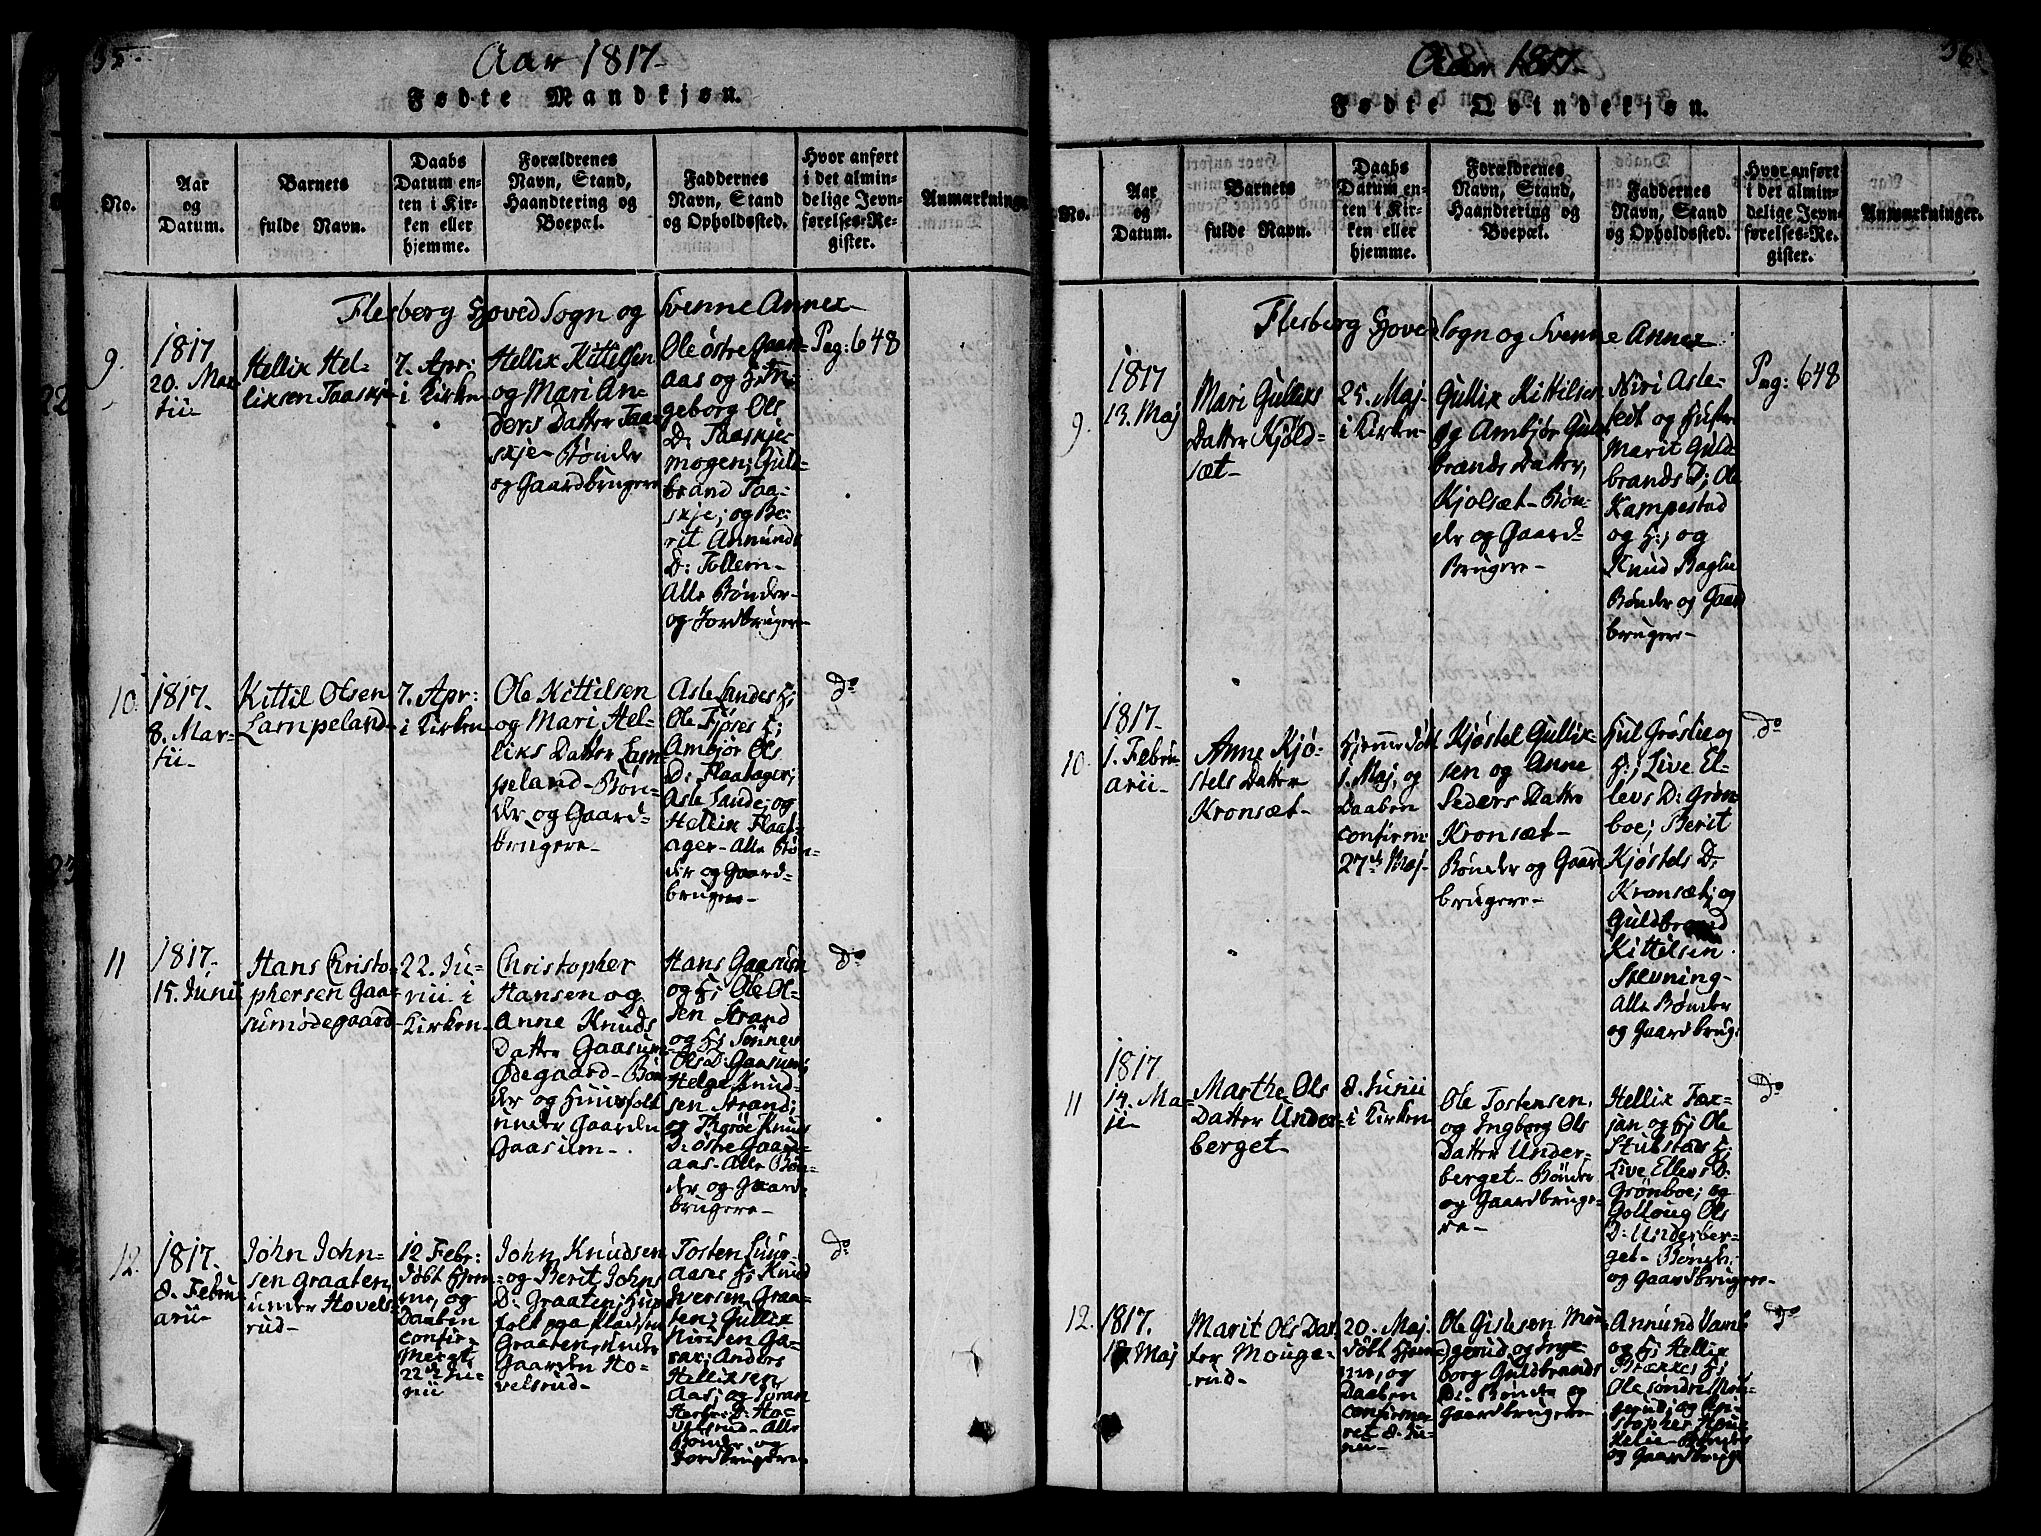 35.
Aar 1817
Fødte Mandkjøn.
No.
Aar
og
Datum.
Barnets
fulde Navn.
Daabs
Datum en-
ten i Kir-
ken eller
hjemme.
Forældrenes
Navn, Stand,
Haandtering og
Boepæl.
Faddernes
Navn, Stand
og Opholdssted.
Hvor anført
i det almin-
delige Jevn-
førelses-Re-
gister.
Anmærkninger
Flesberg Hoved Sogn og Svenne Annex
9.
1817
20. Mar
tii
Hellix Hel-
liksen Taaskje
7. Apr:
i Kirken
Hellix Kittelsen
og Mari An-
ders Datter Taa-
skje Bønder
og Gaardbrugere
Ole østre Gaard-
aas og H: In-
geborg Ols
D: Taaskje
mogen; Guld-
brand Taa-
skje; og Be-
rit Amunds
D: Tollem-
Alle Bønder
og Jordbrugere
Pag: 648
10.
1817.
8. Mar-
tii
Kittil Olsen
Lampeland
7. Apr:
i Kirken
Ole Kittilsen
og Mari Hel-
liks Datter Lam-
peland Bøn-
der og Gaard-
brugere
Asle Landes H;
Ole Fjøses H;
Ambjør Ols
D: Flaatager;
Asle Lande; og
Hellix Flaat-
ager- Alle Bøn-
der og Gaard-
brugere
do
11
1817.
15. Junii
Hans Christo-
phersen Gaa-
sumødegaard
22. Ju-
nii i
Kirken
Christopher
Hansen og
Anne Knuds
Datter Gaasum-
Ødegaard Bøn
der og Huusfolk
under Gaarden
Gaasum-
Hans Gaasum
og H; Ole Ol-
sen Strand
og H; Sønnev
Ols D: Gaasum;
Helge Knud-
sen Strand;
og Thgrøe Knuds
D: østre Gaard-
aas- Alle Bøn-
der og Gaard-
brugere
do
12.
1817.
8. Febru
arii
John John-
sen Graaten
under Hovels-
rud
12 Febr:
døbt hjem-
me, og
Daaben
confir-
meret
22d Ju-
nii
John Knudsen
og Berit Johns
D: Graaten; Huus
folk paa Pladsen
Graaten under
Gaarden Ho-
velsrud
Tosten Luur-
aases H; Knud
Iversen Graa-
ten; Gullix
Nirisen Ga-
Anders
Helliksen
Aas; og
D: Ho-
velsrud- Alle
Bønder og
Jordbrugere
do
36.
Aar 1817
Fødte Qvindekjøn.
No.
Aar
og
Datum.
Barnets
fulde Navn.
Daabs
Datum en-
ten i Kir-
ken eller
hjemme.
Forældrenes
Navn, Stand,
Haandtering og
Boepæl.
Faddernes
Navn, Stand
og Opholdssted.
Hvor anført
i det almin-
delige Jevn-
førelses-Re-
gister.
Anmærkninger.
Flesberg Hoved Sogn og Svenne Annex
9.
1817
13. Maj
Mari Gulliks
Datter Kjøld-
sæt
25. Maj
i Kirken
Gullix Kittilsen
og Ambjør Guld
brands Datter,
Kjolsæt- Bøn-
der og Gaard-
Brugere
Niri Asle-
tedt og Hustr
Marit Guld
brands D; Ole
Kampestad
og H:; og
Knud Baglie
Bønder og Gaard
brugere
Pag: 648
10.
1817.
1. Febru
arii
Anne Kjø-
stels Datter
Kronsæt
hjemme døbt
1. Maj, og
Daaben
confirm:
27d Maj
Kjøstel Gullix-
sen og Anne
Peders Datter
Kronsæt
Bønder og Gaard
brugere
Hiul Grøslie og
H:; Live El-
levs D: Grøn
boe; Berit
Kjøstels D:
Kronsæt; og
Guldbrand
Kittilsen
Stevning-
Alle Bønder
og Gaardbrug:
do
11
1817.
14. Ma-
ji
Marthe Ols
Datter Under-
berget
8. Junii
i Kirken
Ole Tostensen
og Ingborg Ols
Datter Under-
berget- Bønder
og Gaardbruge-
re
Hellix Fax-
jan og H; Ole
Stubstads H;
Live Ellevs D:
Grønboe; og
Golloug Ols
D: Underber-
get- Bønder
og Gaardbrugere
do
12.
1817.
Maj
Marit Ols Dat-
ter Mouge-
rud
20. Maj
døbt hjem-
me, og
Daaben
confirme-
ret 8. Ju-
nii
Ole Gislesen Mou-
gerud og Inge-
borg Guldbrands
D: Bønder og
Gaardbrugere
Annund
og H; Hellix
Brækkes H;
Ole søndre Mou-
gerud; og Chri-
stopher
Bønder
og Gaardbrug
do